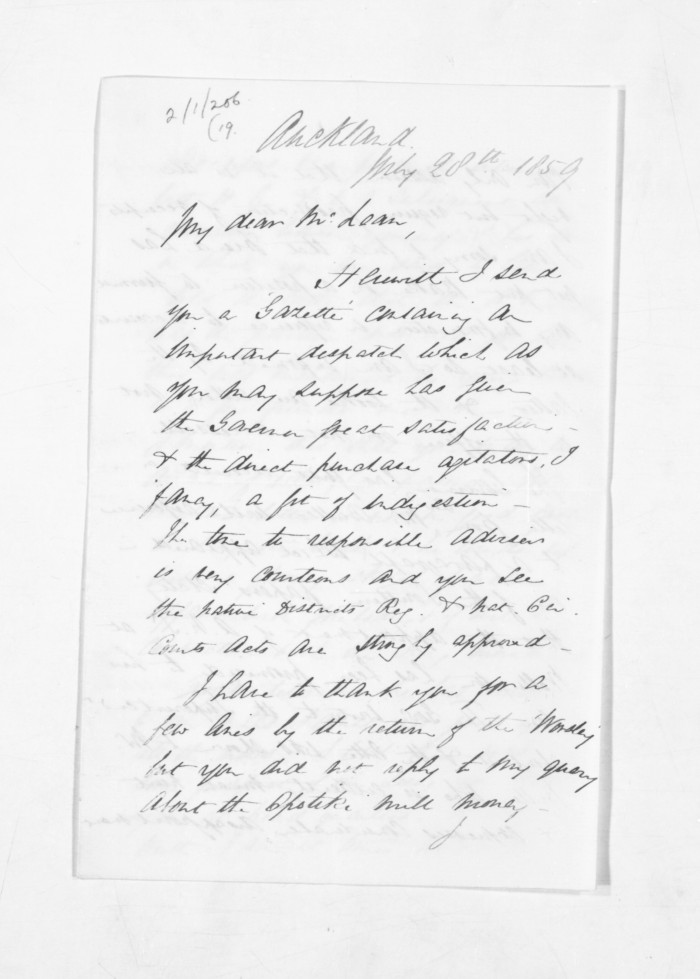 2/1/206
(19.
Auckland.
July 28th 1859
My dear McLean,
Herewith I send
you a 'Gazette' containing an
important despatch which as
you may suppose has given
the Governor great satisfaction -
& the direct purchase agitators, I
fancy, a fit of indigestion -
The tone to responsible advisers
is very courteous and you see
the native Districts Reg. & Nat. Cir.
Courts Acts are strongly approved -
I have to thank you for a
few lines by the return of the 'Wonsley'
but you did not reply to my query
about the Opotiki mill money -
I